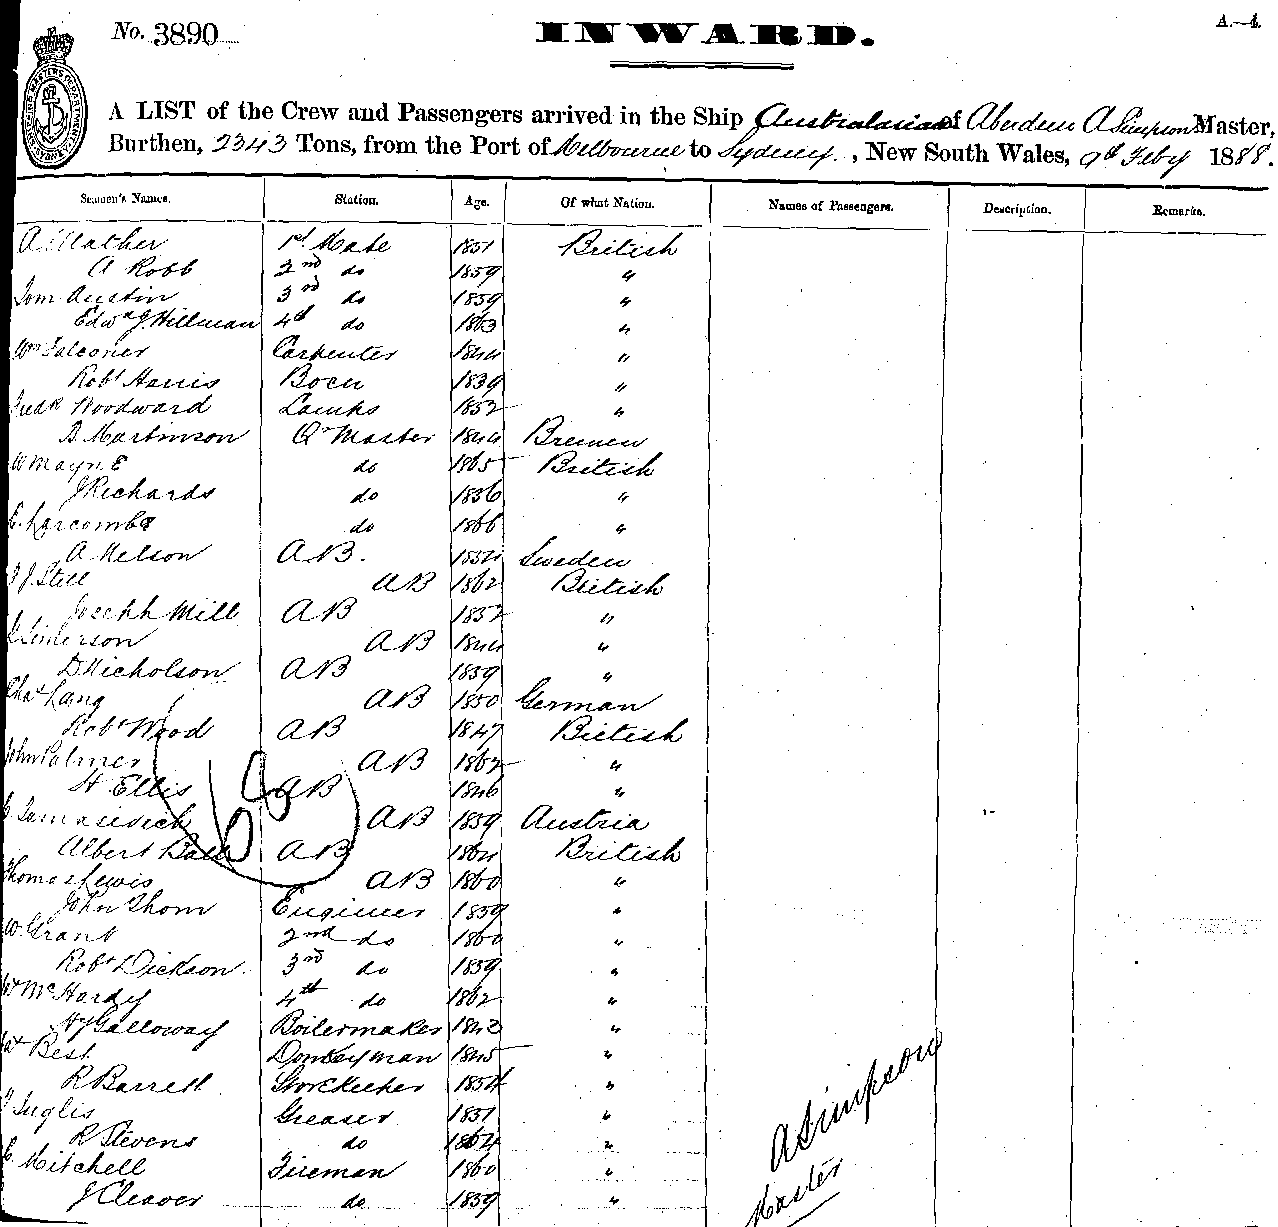 No. 3890
INWARD.
A.—4.
A LIST of the Crew and Passengers arrived in the Ship Australasian of Aberdeen A Simpson Master,
Burthen, 2343 Tons, from the Port of Melbourne to Sydney, New South Wales, 9th Feby 1888.
Seamen's Names. Station. Age. Of what Nation. Names of Passengers. Description. Remarks.
A. Mather 1st Mate 1851 British
A Robb 2nd do 1859 "
Tom Austin 3rd do 1859 "
Edwd J. Hillman 4th do 1863 "
Wm Falconer Carpenter 1844 "
Robt Harris Bosn 1839 "
Fredk Woodward Lamps 1852 "
B Martinson Qr Master 1844 Bremen
W Mayne do 1865 British
J Richards do 1836 "
Larcombe do 1866 "
A Nelson AB. 1834 Sweden
J Still AB 1862 British
Joseph Mill AB 1852 "
AB 1844 "
D Nicholson AB 1859 "
Chas Lang AB 1850 German
Robt Wood AB 1847 British
John Palmer AB 1862 "
H Ellis AB 1846 "
AB 1859 Austria
Albert Ball AB 1864 British
Thomas Lewis AB 1860 "
John Thom Engineer 1859 "
W Grant 2nd do 1860 "
Robt Dickson 3rd do 1859 "
Wm McHardy 4th do 1862 "
Hy Galloway Boilermaker 1842 "
Best Donkeyman 1845 "
R Barrett Storekeeper 1854 "
Inglis Greaser 1851 "
R Stevens do 1864 "
Mitchell Fireman 1860 "
J Cleaver do 1859 "
68
A Simpson
Master